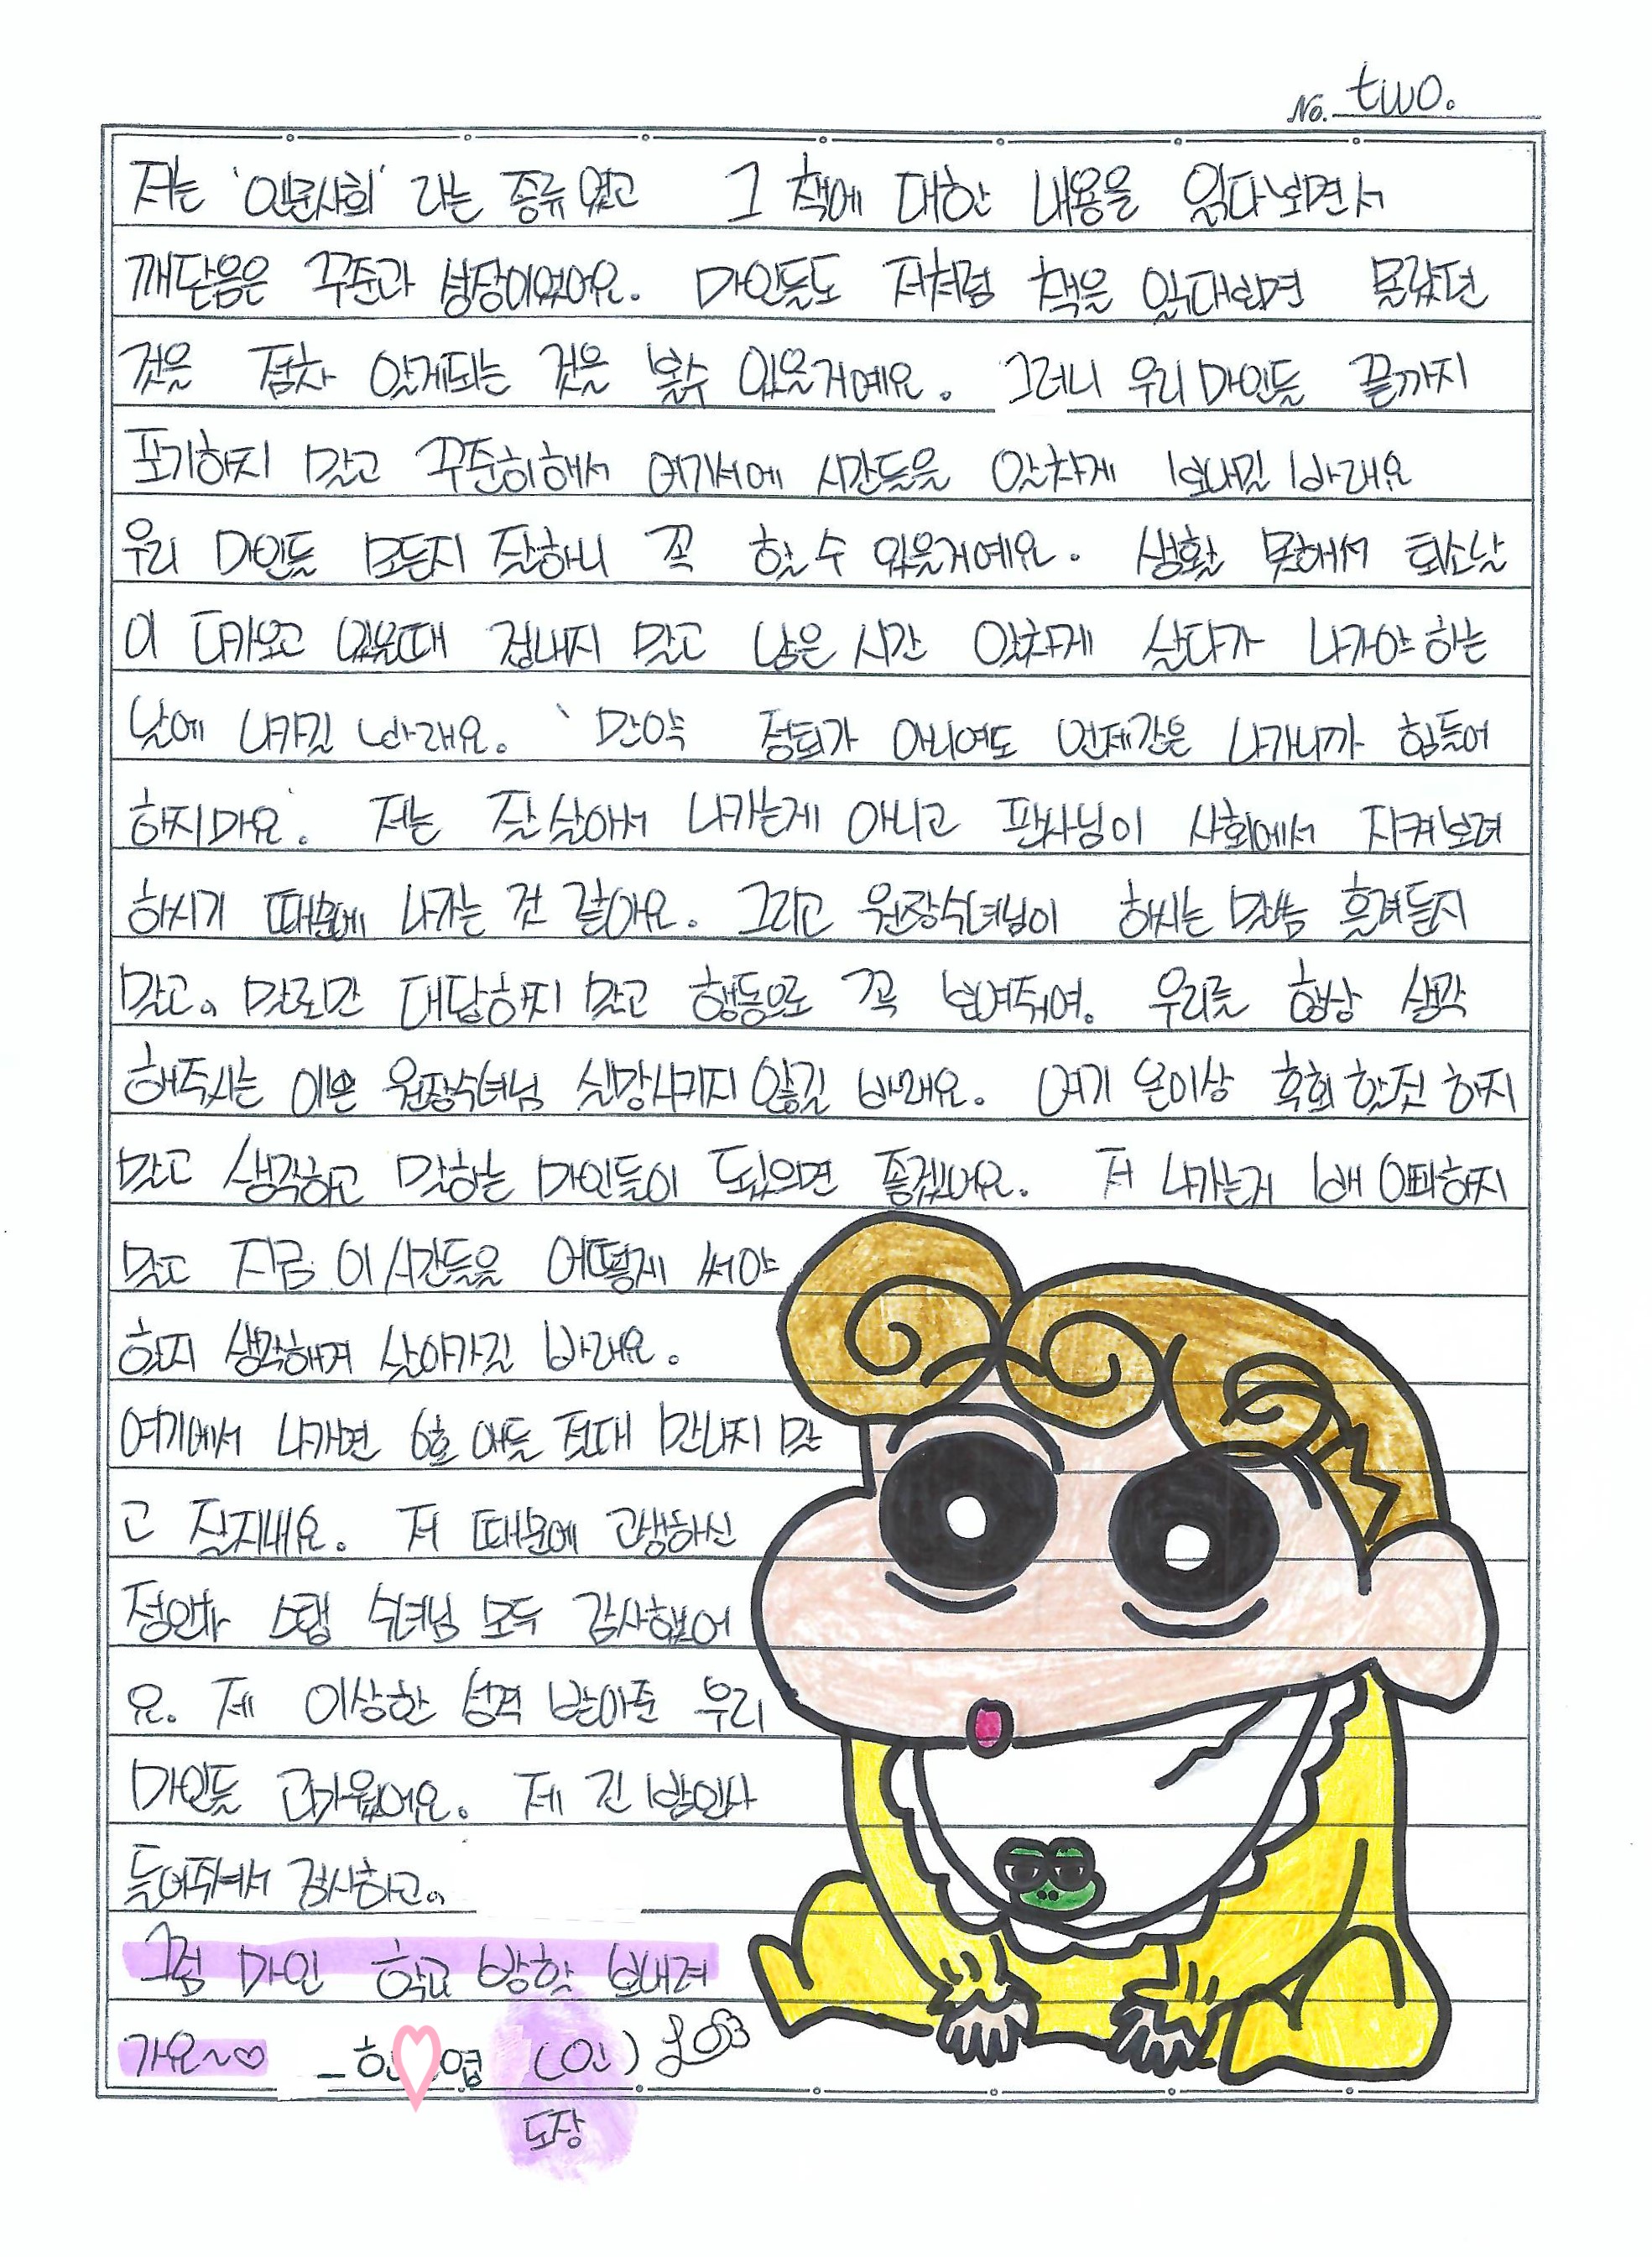 No. two.
저는 '인문사회' 라는 종류 였고 그 책에 대한 내용을 읽다보면서
깨닫음은 꾸준과 성장이였어요. 마인들도 저처럼 책을 읽다보면 몰랐던
것을 점차 알게되는 것을 볼수 있을거예요. 그러니 우리 마인들 끝까지
포기하지 말고 꾸준히해서 여기서에 시간들을 알차게 보내길 바래요
우리 마인들 모든지 잘하니 꼭 할 수 있을거예요. 생활 못해서 퇴소날
이 다가오고 있을때 겁내지 말고 남은 시간 알차게 살다가 나가야 하는
날에 나가길 바래요. 만약 정퇴가 아니여도 언제간은 나가니까 힘들어
하지마요. 저는 잘 살아서 나가는게 아니고 판사님이 사회에서 지켜보려
하시기 때문에 나가는 것 같아요. 그리고 원장수녀님이 하시는 말씀 흘려듣지
말고. 말로만 대답하지 말고 행동으로 꼭 보여줘여. 우리를 항상 생각
해주시는 이쁜 원장수녀님 실망시키지 않길 바래요. 여기 온이상 후회 할것 하지
말고 생각하고 말하는 마인들이 됐으면 좋겠어요. 저 나가는거 배 아파하지
말고 지금 이 시간들을 어떻게 써야
할지 생각해겨 살아가길 바래요.
여기에서 나가면 6호 애들 절대 만나지 말
고 잘지내요. 저 때문에 고생하신
정인과 스탭 수녀님 모두 감사했어
요. 제 이상한 성격 받아준 우리
마인들 고마웠어요. 제 긴 발인사
들어주셔서 감사하고.
그럼 마인 학교 방학 보내러
가요~♡ _ 한 엽 (인)
도장